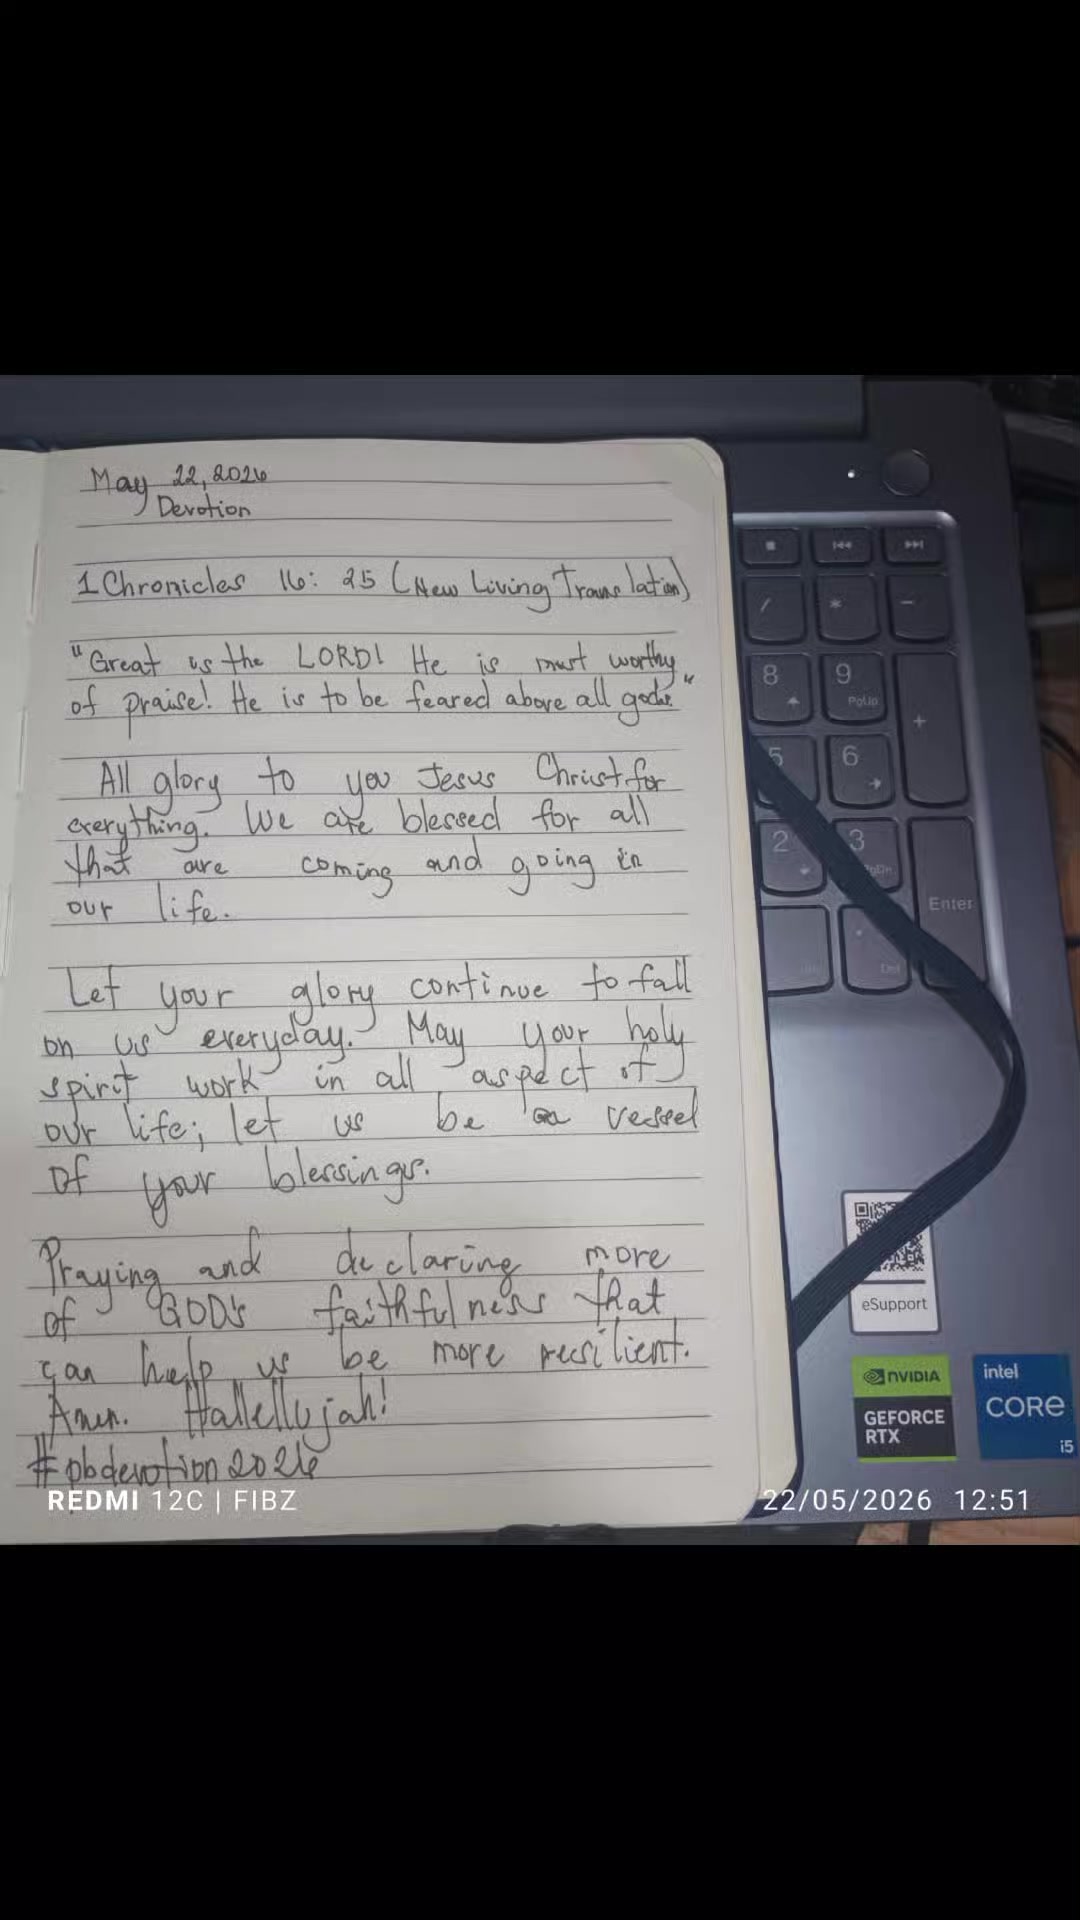 May 22, 2026
Devotion
1 Chronicles 16: 25 (New Living Translation)
"Great is the LORD! He is most worthy
of praise! He is to be feared above all gods."
All glory to you Jesus Christ for
everything. We are blessed for all
that are coming and going in
our life.
Let your glory continue to fall
on us everyday. May your holy
spirit work in all aspect of
our life; let us be a vessel
of your blessings.
Praying and declaring more
of GOD's faithfulness that
can help us be more resilient.
Amen. Hallellujah!
#pbdevotion2026
REDMI 12C | FIBZ
22/05/2026 12:51
/
*
-
8
9
PgUp
+
5
6
2
3
PgDn
Enter
Del
eSupport
NVIDIA
GEFORCE
RTX
intel
CORE
i5